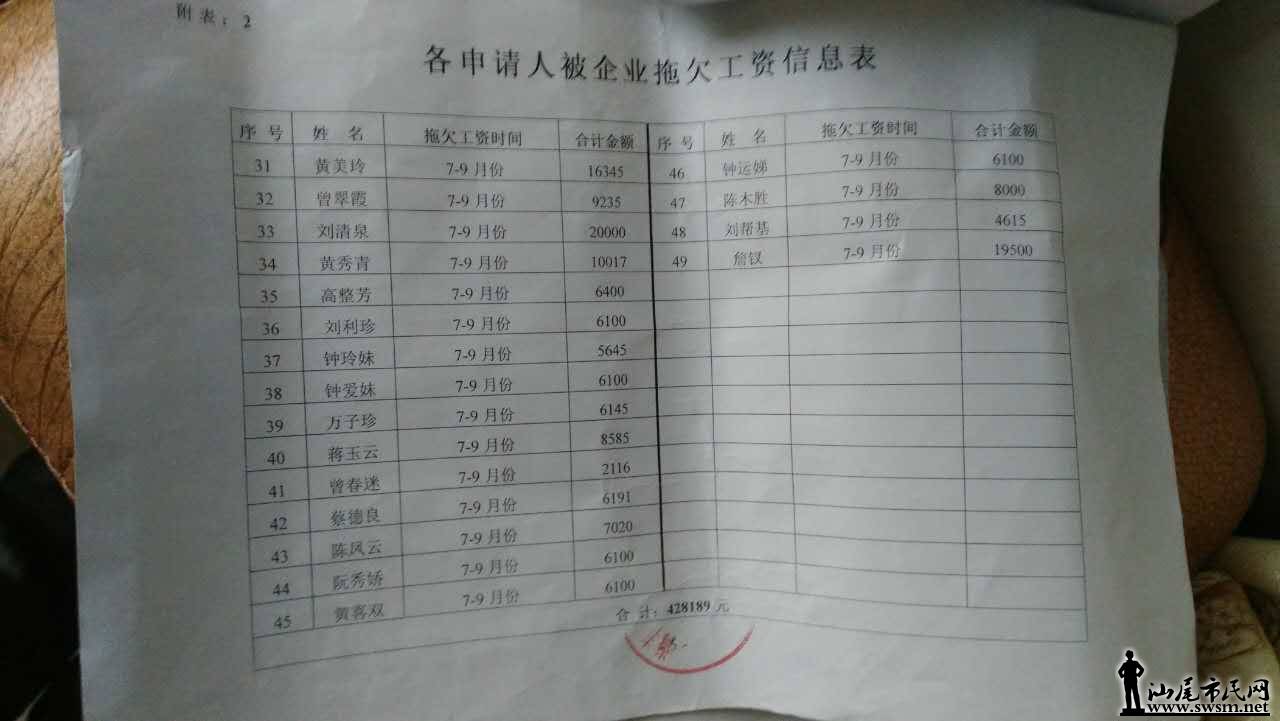 附表：2
各申请人被企业拖欠工资信息表
序 号 姓 名 拖欠工资时间 合计金额 序 号 姓 名 拖欠工资时间 合计金额
31 黄美玲 7-9 月份 16345 46 钟运娣 7-9 月份 6100
32 曾翠霞 7-9 月份 9235 47 陈木胜 7-9 月份 8000
33 刘清泉 7-9 月份 20000 48 刘帮基 7-9 月份 4615
34 黄秀青 7-9 月份 10017 49 詹钗 7-9 月份 19500
35 高整芳 7-9 月份 6400
36 刘利珍 7-9 月份 6100
37 钟玲妹 7-9 月份 5645
38 钟爱妹 7-9 月份 6100
39 万子珍 7-9 月份 6145
40 蒋玉云 7-9 月份 8585
41 曾春迷 7-9 月份 2116
42 蔡德良 7-9 月份 6191
43 陈凤云 7-9 月份 7020
44 阮秀娇 7-9 月份 6100
45 黄喜双 7-9 月份 6100
合 计：428189 元
汕尾市民网
www.swsm.net